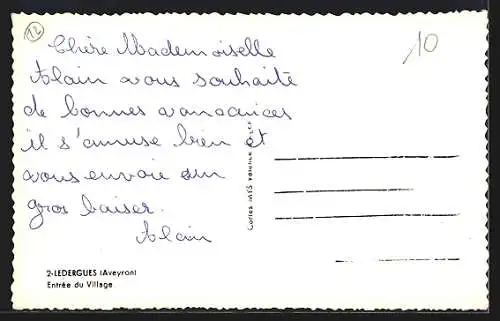 12
10
Chère Mademoiselle
Alain vous souhaite
de bonnes vancances
il s'amuse bien et
vous envoie un
gros baiser.
Alain
2-LEDERGUES (Aveyron)
Entrée du Village
Cartes